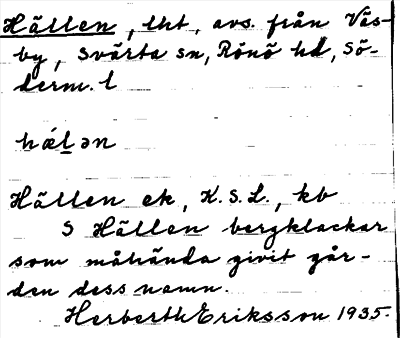 Hällen, lht, avs. från Väs-
by, Svärta sn, Rönö hd, Sö-
derm. l
hǽlən
Hällen ek, K.S.L., kb
S Hällen bergklackar
som måhända givit går-
den dess namn.
Herberth Eriksson 1935.